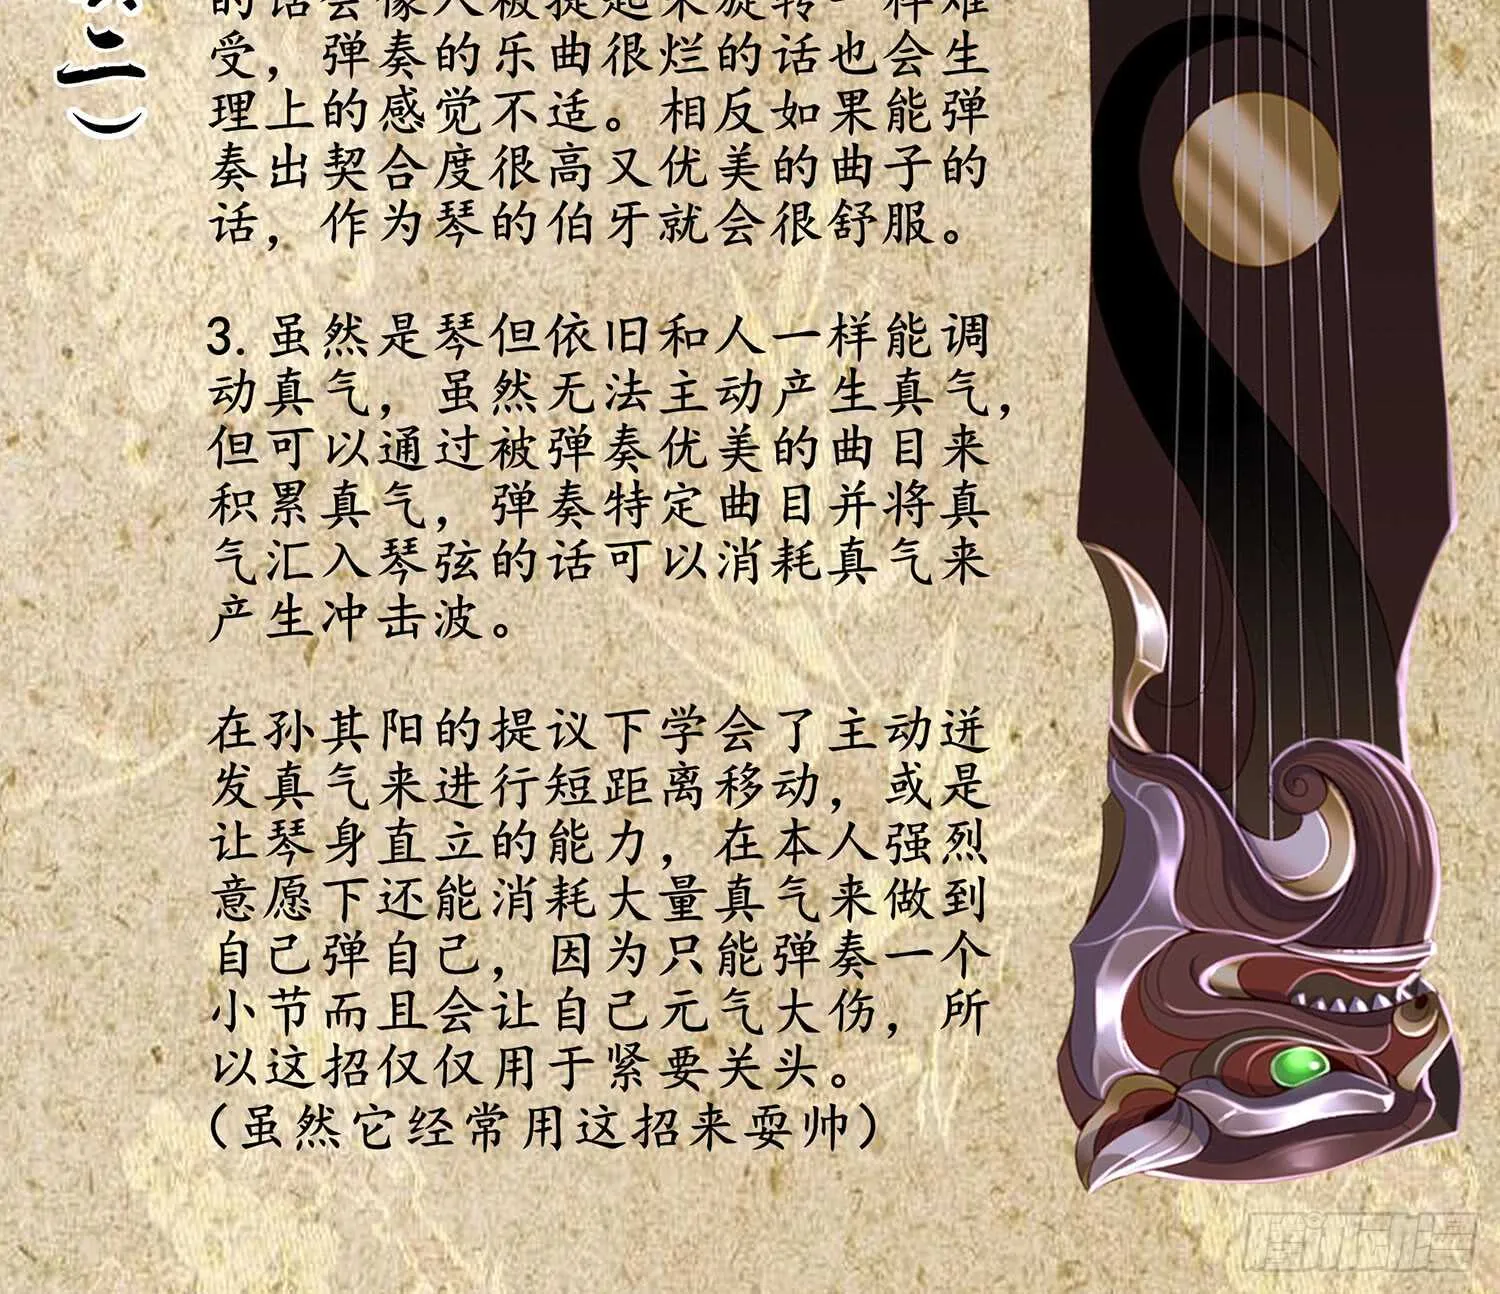 二）
的话会像人被提起来旋转一样难
受，弹奏的乐曲很烂的话也会生
理上的感觉不适。相反如果能弹
奏出契合度很高又优美的曲子的
话，作为琴的伯牙就会很舒服。
3. 虽然是琴但依旧和人一样能调
动真气，虽然无法主动产生真气，
但可以通过被弹奏优美的曲目来
积累真气，弹奏特定曲目并将真
气汇入琴弦的话可以消耗真气来
产生冲击波。
在孙其阳的提议下学会了主动迸
发真气来进行短距离移动，或是
让琴身直立的能力，在本人强烈
意愿下还能消耗大量真气来做到
自己弹自己，因为只能弹奏一个
小节而且会让自己元气大伤，所
以这招仅仅用于紧要关头。
（虽然它经常用这招来耍帅）
腾讯动漫